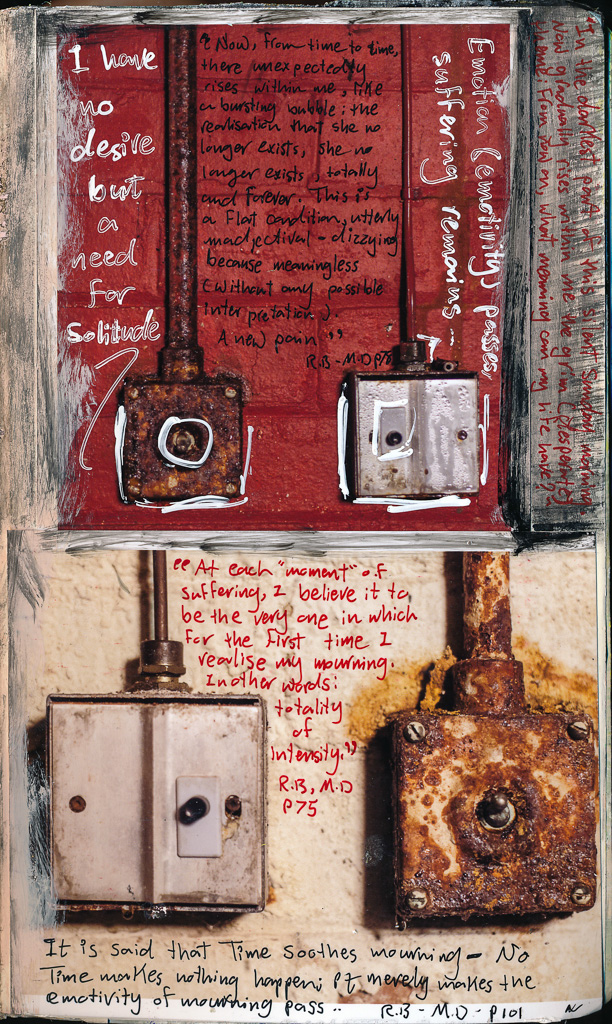 I have
no
desire
but
a
need
for
Solitude
“Now, from time to time,
there unexpectedly
rises within me, like
a bursting bubble: the
realisation that she no
longer exists, she no
longer exists, totally
and forever. This is
a flat condition, utterly
unadjectival - dizzying
because meaningless
(without any possible
interpretation).
A new pain”
R.B - M.D P78
Emotion (emotivity) passes,
suffering remains...
“In the darkest part of this silent Sunday morning
Now gradually rises within me the grim (desperate)
theme: From now on, what meaning can my life have?”
“At each "moment" of
suffering, I believe it to
be the very one in which
for the first time I
realise my mourning.
In other words:
totality
of
intensity.”
R.B, M.D
P75
It is said that Time soothes mourning - No
Time makes nothing happen; it merely makes the
emotivity of mourning pass..
R.B - M.D - P101